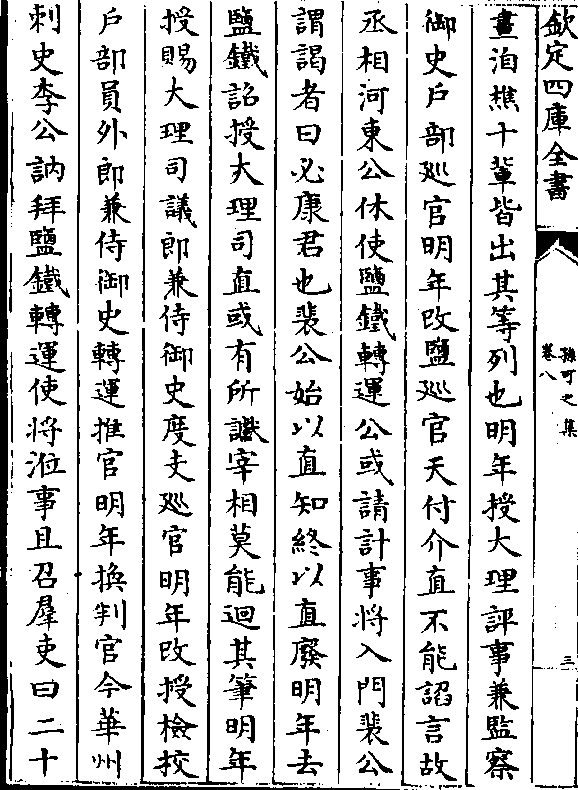 欽定四庫全書
孫可之集
卷八
三
畫洎樵十輩皆出其等列也明年授大理評事兼監察
御史戶部廵官明年改鹽廵官天付介直不能諂言故
丞相河東公休使鹽鐵轉運公或請計事將入門裴公
謂謁者曰必康君也裴公始以直知終以直廢明年去
鹽鐵詔授大理司直或有所讞宰相莫能迴其筆明年
授賜大理司議郎兼侍御史度支廵官明年改授檢挍
戶部員外郎兼侍御史轉運推官明年換判官今華州
刺史李公訥拜鹽鐵轉運使將涖事且召羣吏曰二十